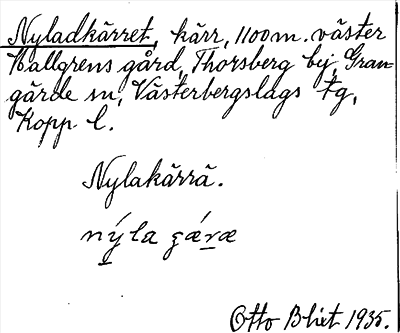 Nyladkärret, kärr, 1100 m. väster
Hallgrens gård, Thorsberg by, Gran-
gärde sn, Västerbergslags tg,
Kopp l.
Nylakärrä.
Otto Blixt 1935.